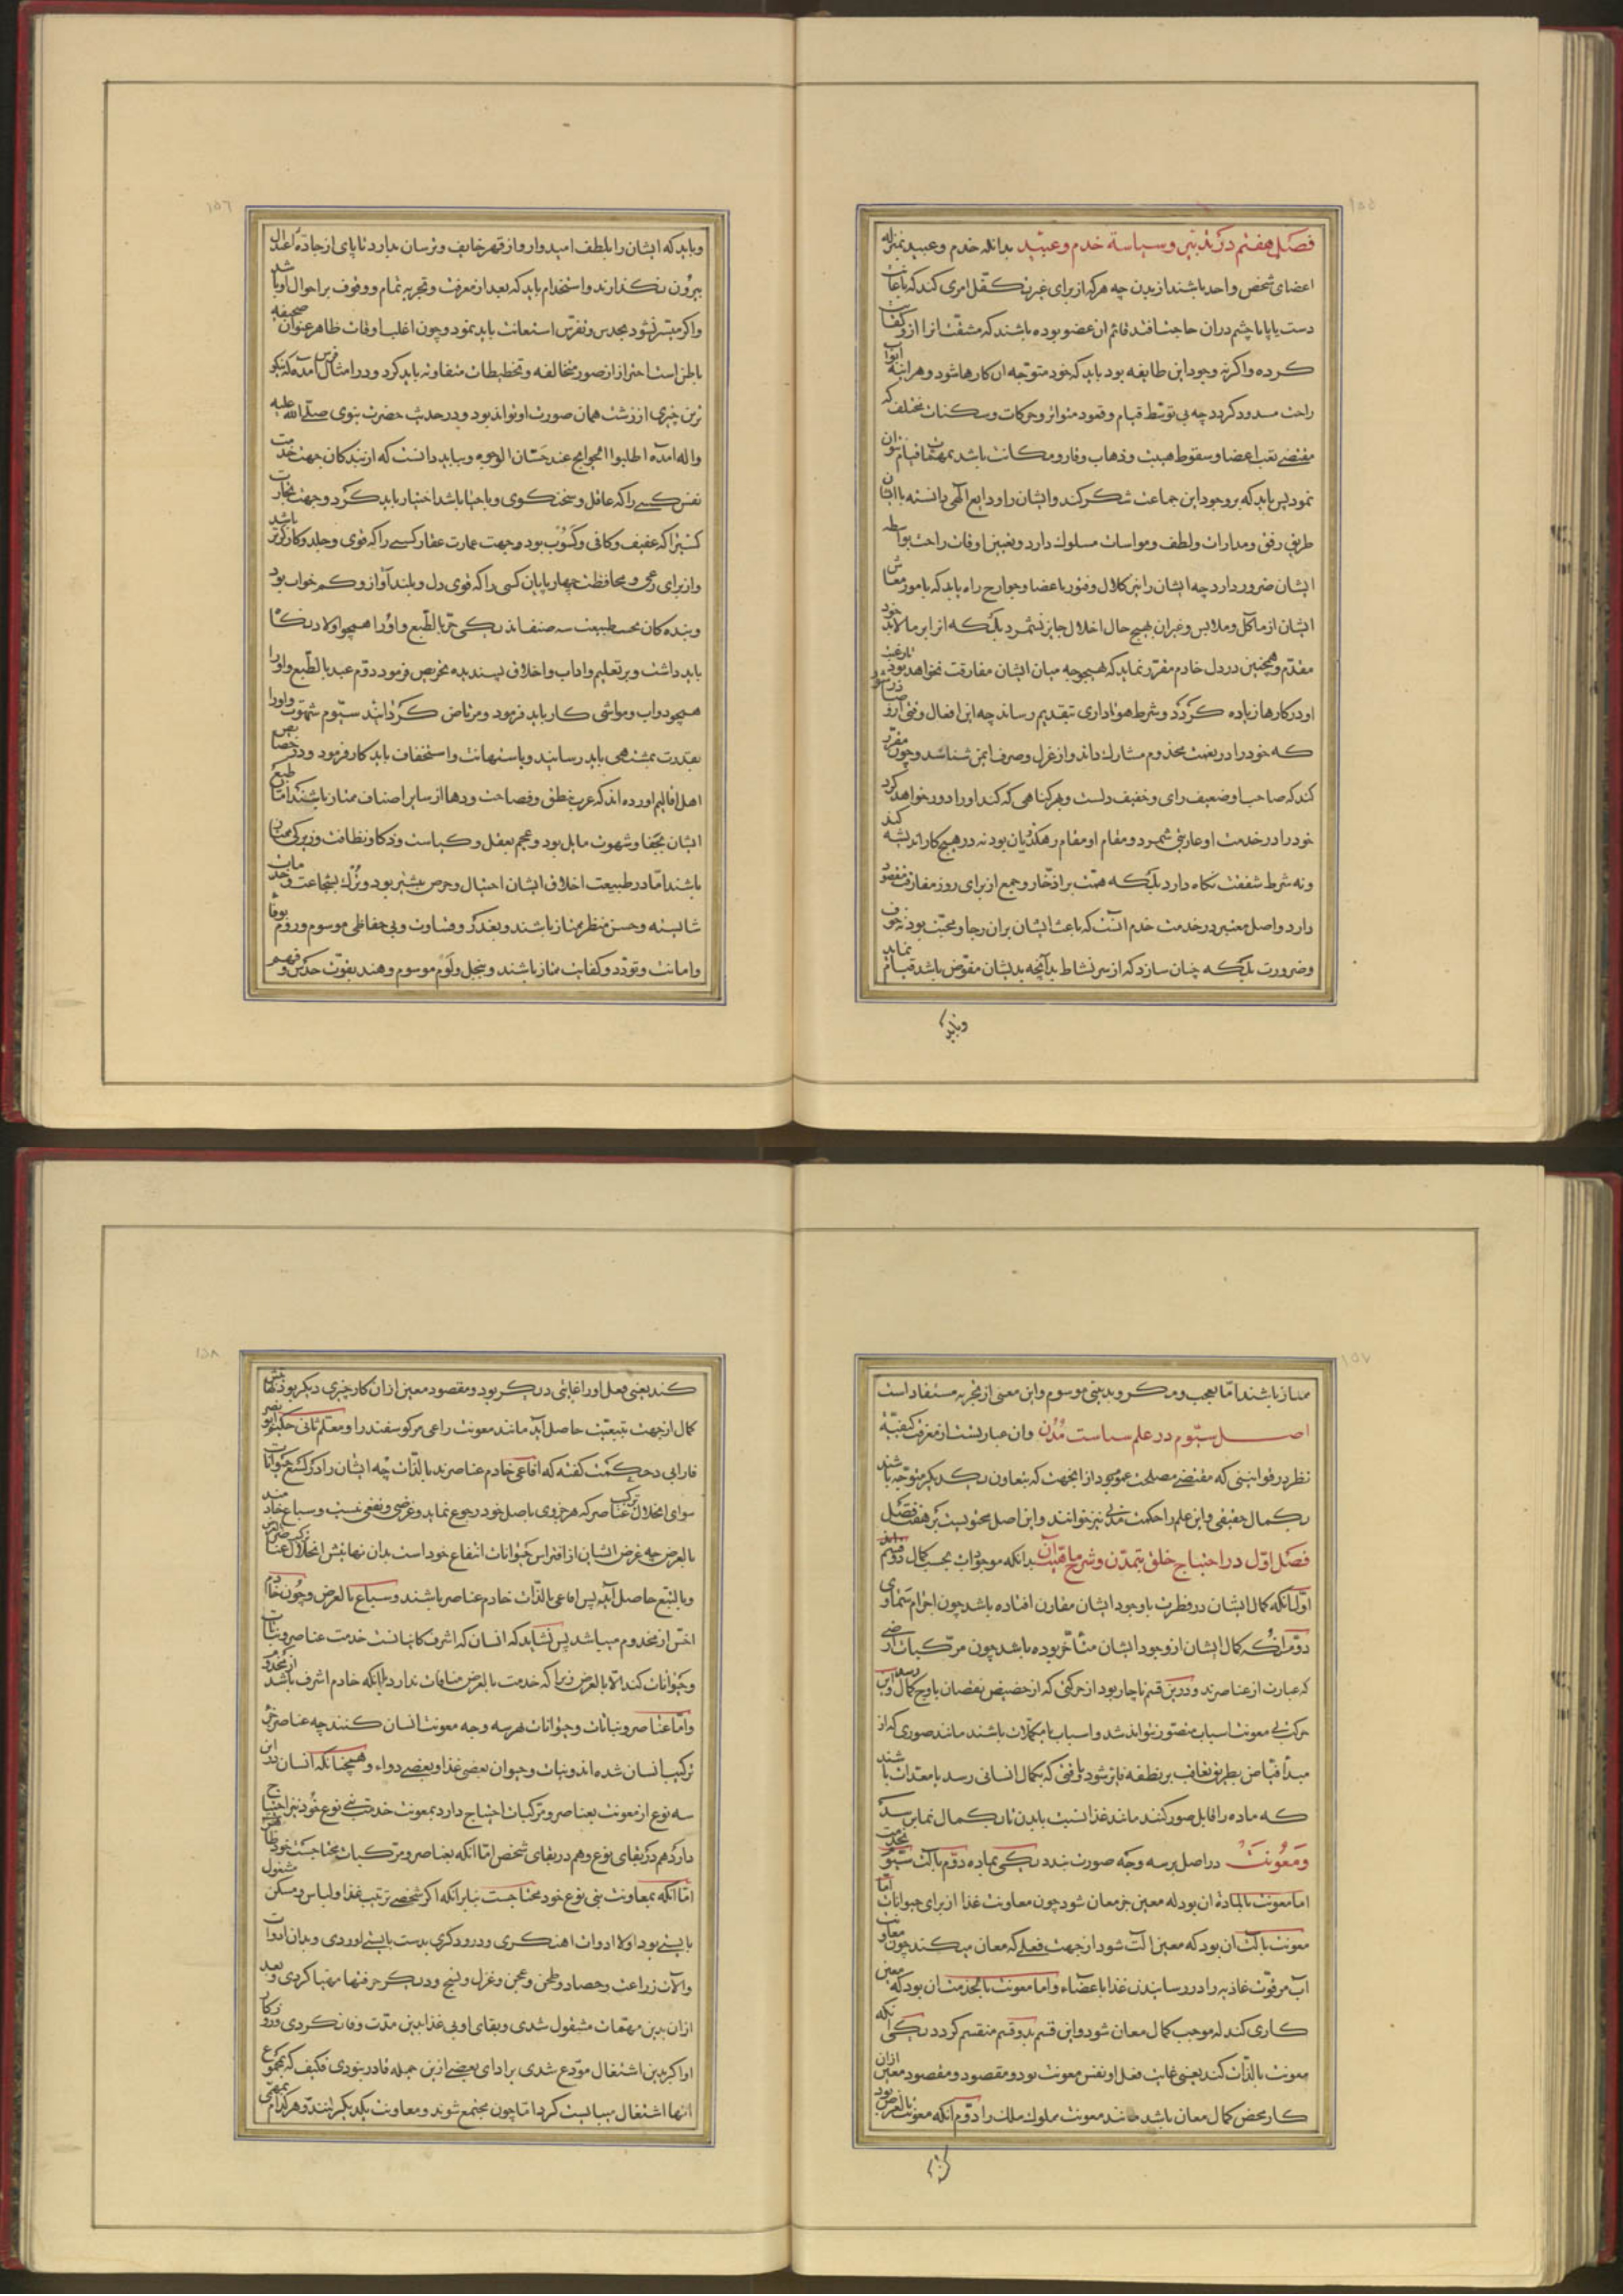 ١٥٥
فصل هفتم در تدبیر و سیاسة خدم و عبید بدانکه خدم و عبید بمنزله
اعضای شخص واحد باشند از بدن چه هر که از برای غیری تکفل امری کند که باعانت
دست یا پا یا چشم دران حاجت افتد قائم ان عضو بوده باشند که مشقت انرا ازو کفایت
کرده و اگر نه وجود این طایفه بود باید که خود متوجه ان کارها شود و هر اینه ابواب
راحت مسدود کردد چه بی توسط قیام و قعود متواتر و حرکات و سکنات مختلف که
مقتضی تعب اعضا و سقوط هیبت و ذهاب وقار و مکانت باشد بمهمات قیام نتوان
نمود پس باید که بر وجود این جماعت شکر کند و ایشان را ودایع الهی دانسته با ایشان
طریق رفق و مدارات و لطف و مواسات مسلوک دارد و تعیین اوقات راحت بواسطه
ایشان ضرور دارد چه ایشان را نیز کلال و فتور باعضا و جوارح راه یابد که بامور معاش
ایشان از ماکل و ملابس و غیران بهیچ حال اخلال جایز نشمرد بلکه انرا بر مالابد خود
مقدم و همچنین در دل خادم مقرر نماید که بهیچوجه میان ایشان مفارقت نخواهد بود تا رغبت
او در کارها زیاده کردد و شرط هواداری بتقدیم رساند چه این افعال وقتی ازو صادر شود
که خود را در نعمت مخدوم مشارک داند و از عزل و صرف ایمن شناسد و چون مقرر
کند که صاحب او ضعیف رای و خفیف راست و بهر کناهی که کند او را دور خواهد کرد
خود را در خدمت او عاریتی شمرد و مقام او مقام رهکذریان بود نه در هیچ کار اندیشه کند
و نه شرط شفقت نکاه دارد بلکه همت بر ادخار و جمع از برای روز مفارقت مقصور
دارد و اصل معتبر در خدمت خدم انست که باعث ایشان بران رجا و محبت بود نه خوف
و ضرورت بلکه چنان سازد که از سر نشاط بدآنچه بدیشان مفوض باشد قیام نماید
و باید که
١٥٦
و باید که ایشان را بلطف امیدوار و از قهر خایف و ترسان دارد تا پای از جاده اعتدال
بیرون نکذارند و استخدام باید که بعد از معرفت و تجربه تمام و وقوف بر احوال او باشد
و اگر میسر نشود بحدس و تفرس استعانت باید نمود و چون اغلب اوقات ظاهر عنوان صحیفه
باطن است احتراز از صور مختالفه و تخطیطات متفاوته باید کرد و در امثال فرس آمده که نیکو
ترین چیزی از زشت همان صورت او تواند بود و در حدیث حضرت نبوی صلی الله علیه
و اله آمده اطلبوا الحوایج عند حسان الوجوه و بباید دانست که از بندکان جهت خدمت
نفس کسی را که عاقل و سخن کوی و با حیا باشد اختیار باید کرد و جهت تجارت
کسی را که عفیف و کافی و کسوب بود و جهت عمارت عقار کسی را که قوی و جلد و کارکن تر باشد
و از برای رعی و محافظت چهارپایان کسی را که قوی دل و بلند آواز و کم خواب بود
و بنده کان بحسب طبیعت سه صنف اند یکی حر بالطبع و او را همچو اولاد نکاه
باید داشت و بر تعلیم و اداب و اخلاق پسندیده تحریص فرمود دوم عبد بالطبع و او را
همچو دواب و مواشی کار باید فرمود و مرتاض کردانید سیوم شهوت و او را
بقدرت بمشتهی باید رسانید و باستهانت و استخفاف باید کار فرمود و در خصایص
اهل اقالیم اورده اند که عرب بنطق و فصاحت و دها از سایر اصناف ممتاز باشند اما طبع
ایشان بجفا و شهوت مایل بود و عجم بعقل و کیاست و ذکا و نظافت و زیرکی ممتاز
باشند اما در طبیعت اخلاق ایشان احتیال و حرص بیشتر بود و ترک بشجاعت و خدمات
شایسته و حسن منظر ممتاز باشند و بغدر و قساوت و بی حفاظی موسوم و روم بوفا
و امانت و تودد و کفایت ممتاز باشند و ببخل و لوم موسوم و هند بقوت حدس و فهم
١٥٧
ممتاز باشند اما بعجب و مکر و بدنیتی موسوم و این معنی از تجربه مستفاد است
اصل سیوم در علم سیاست مدن وان عبارتست از معرفت کیفیة
نظر در قوانینی که مقتضی مصلحت عموم بود از آنجهت که بتعاون یکدیگر متوجه باشند
بکمال حقیقی و این علم را حکمت مدنی نیز خوانند و این اصل محتویست بر هفت فصل
فصل اول در احتیاج خلق بتمدن و شرح ماهیت آن بدانکه موجودات بحسب کمال دو قسم
اول آنکه کمال ایشان در فطرت با وجود ایشان مقارن افتاده باشد چون اجرام سماوی
دوم انکه کمال ایشان از وجود ایشان متأخر بوده باشد چون مرکبات ارضی
که عبارت از عناصرند و درین قسم ناچار بود از حرکتی که از حضیض نقصان باوج کمال رسد و این
حرکت بی معونت اسباب متصور نتواند شد و اسباب یا مکملات باشند مانند صوری که از
مبدأ فیاض بطریق تعاقب بر نطفه فایز شود تا وقتی که بکمال انسانی رسد یا معدات باشند
که ماده را قابل صور کنند مانند غذا نسبت ببدن تا بکمال نمایی رسد
و معونت در اصل بر سه وجه صورت بندد یکی بماده دوم بآلت سیوم بخدمت
اما معونت بالماده ان بود که معین جز معان شود چون معاونت غذا از برای حیوانات اما
معونت بآلت ان بود که معین آلت شود از جهت فعلی که معان میکند چون معاونت
آب مر قوت غاذیه را در رسانیدن غذا باعضاء و اما معونت بالخدمت ان بود که معین
کاری کند که موجب کمال معان شود و این قسم بدو قسم منقسم کردد یکی انکه
معونت بالذات کند یعنی غایت فعل او نفس معونت بود و مقصود و مقصود معین ازان
کار محض کمال معان باشد مانند معونت مملوک ملک را دوم آنکه معونت بالعرض بود
کند
١٥٨
کند یعنی فعل او را غایتی دیگر بود و مقصود معین ازان کار چیزی دیگر بود
کمال از جهت تبعیت حاصل آید مانند معونت راعی مر کوسفند را و معلم ثانی حکیم ابو نصر
فارابی در حکمت کفته که افاعی خادم عناصرند بالذات چه ایشان را در لسع حیوانات
سوای انحلال ترکیب عناصر که هر جزوی باصل خود رجوع نماید و غرضی و نفعی نیست و سباع خادمند
بالعرض چه غرض ایشان از افتراس حیوانات انتفاع خود است بدان نهایتش انحلال عناصر
و بالتبع حاصل آید پس افاعی بالذات خادم عناصر باشند و سباع بالعرض و چون خادم
اخس از مخدوم میباشد پس نشاید که انسان که اشرف کاینات است خدمت عناصر و نباتات
و حیوانات کند الا بالعرض زیرا که خدمت بالعرض منافات ندارد با آنکه خادم اشرف باشد از مخدوم
و اما عناصر و نباتات و حیوانات بهر سه وجه معونت انسان کنند چه عناصر جزء
ترکیب انسان شده اند و نبات و حیوان بعضی غذا و بعضی دواء و همچنانکه انسان درین
سه نوع از معونت بعناصر و مرکبات احتیاج دارد بمعونت خدمت بنی نوع خود نیز احتیاج
دارد هم در بقای نوع و هم در بقای شخص اما آنکه بعناصر و مرکبات محتاجست خود ظاهر
اما آنکه بمعاونت بنی نوع خود محتاجست بنابر انکه اگر شخصی بترتیب غذا و لباس و مسکن مشغول
بایستی بود اولا ادوات اهنکری و درودکری بدست بایستی اوردی و بدان ادوات
والات زراعت و حصاد و طحن و عجن و غزل و نسج و دیگر حرفتها مهیا کردی و بعد
ازان بدین مهمات مشغول شدی و بقای او بی غذا بدین مدت وفا نکردی و روزکار
او اگر بدین اشتغال موزع شدی بر ادای بعضی ازین جمله قادر نبودی فکیف که بمجموع
آنها اشتغال میبایست کرد اما چون مجتمع شوند و معاونت یکدیگر کنند و هر کدام بمهمی